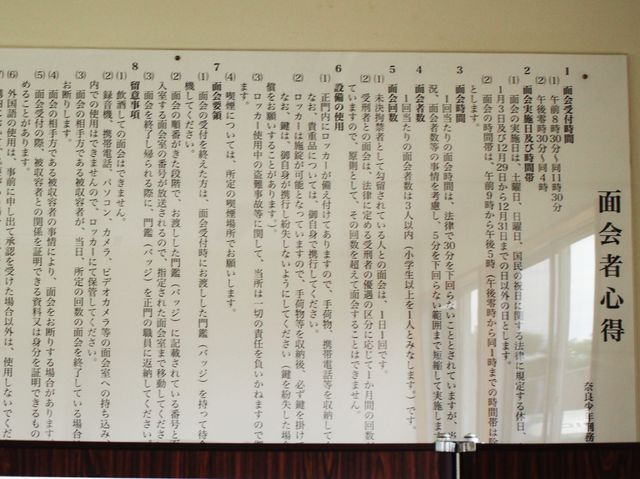 面会者心得
奈良少年刑務
1 面会受付時間
(1) 午前8時30分～同11時30分
(2) 午後零時30分～同4時
2 面会実施日及び時間帯
(1) 面会の実施日は、土曜日、日曜日、国民の祝日に関する法律に規定する休日、
1月3日及び12月29日から12月31日までの日以外の日とします。
(2) 面会の時間帯は、午前9時から午後5時（午後零時から同1時までの時間帯は除
とします。
3 面会時間
1回当たりの面会時間は、法律で30分を下回らないこととされていますが、当
況、面会者数等の事情を考慮し、5分を下回らない範囲まで短縮して実施しま
4 面会者数
1回当たりの面会者数は3人以内（小学生以上を1人とみなします。）です。
5 面会回数
(1) 未決拘禁者として勾留されている人との面会は、1日1回です。
(2) 受刑者との面会は、法律に定める受刑者の優遇の区分に応じて1か月間の回数が
ていますので、原則として、その回数を超えて面会することはできません。
6 設備の使用
(1) 正門内にロッカーが備え付けてありますので、手荷物、携帯電話等を収納して
なお、貴重品については、御自身で携行してください。
(2) ロッカーは施錠が可能となっていますので、手荷物等を収納後、必ず鍵を掛けて
なお、鍵は、御自身が携行し紛失しないようにしてください（鍵を紛失した場合
償をお願いすることがあります。）。
(3) ロッカー使用中の盗難事故等に関して、当所は一切の責任を負いかねますので
(4) 喫煙については、所定の喫煙場所でお願いします。
7 面会要領
(1) 面会の受付を終えた方は、面会受付時にお渡しした門鑑（バッジ）を持って待合
機してください。
(2) 面会の順番がきた段階で、お渡しした門鑑（バッジ）に記載されている番号と
入室する面会室の番号が放送されるので、指定された面会室まで移動してください
(3) 面会を終了し帰られる際に、門鑑（バッジ）を正門の職員に返納してください。
8 留意事項
(1) 飲酒しての面会はできません。
(2) 録音機、携帯電話、パソコン、カメラ、ビデオカメラ等の面会室への持ち込み
内での使用はできませんので、ロッカーにて保管してください。
(3) 面会の相手方である被収容者が、当日、所定の回数の面会を終了している場合
お断りします。
(4) 面会の相手方である被収容者の事情により、面会をお断りする場合があります
(5) 面会受付の際、被収容者との関係を証明できる資料又は身分を証明できるもの
めることがあります。
(6) 外国語の使用は、事前に申し出て承認を受けた場合以外は、使用しないでくだ